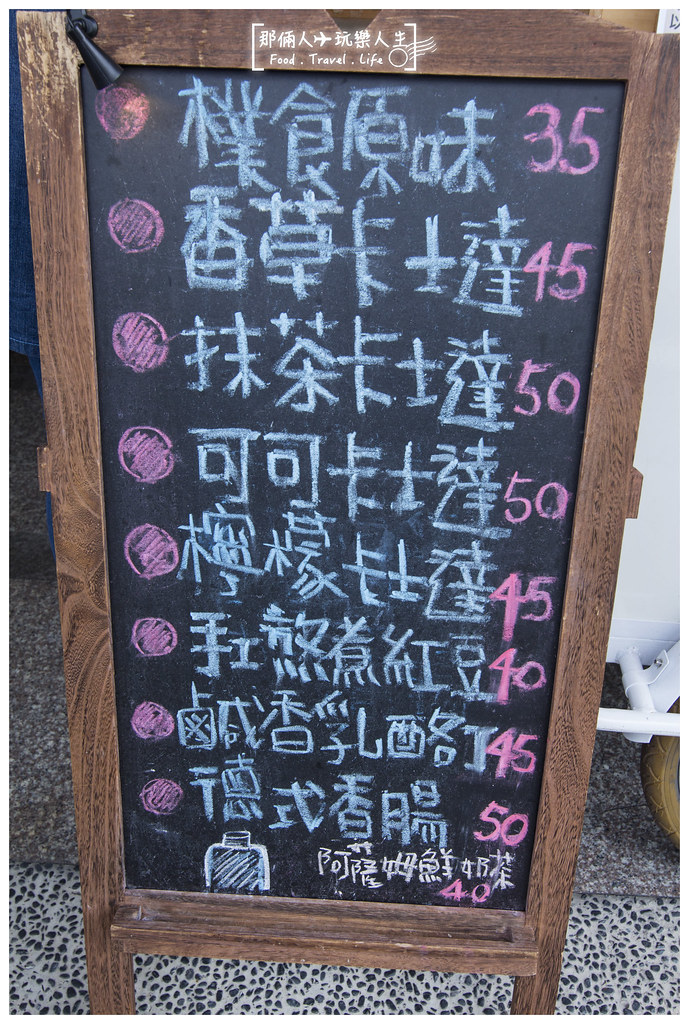 那倆人✈玩樂人生
Food . Travel . Life
樸食原味 35
香草卡士達 45
抹茶卡士達 50
可可卡士達 50
檸檬卡士達 45
手工熬煮紅豆 40
鹹香乳酪丁 45
德式香腸 50
阿薩姆鮮奶茶
40